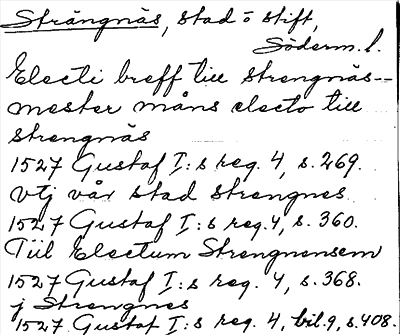 Strängnäs, stad o stift,
Söderm. l.
Electi breff till Strengnäs--
mester måns electo till
strengnäs
1527 Gustaf I:s reg. 4, s. 269.
vtj vår stad strengnes
1527 Gustaf I:s reg. 4, s. 360.
Tiil Electum Strengnensem
1527 Gustaf I:s reg. 4, s. 368.
j Strengnes
1527. Gustaf I:s reg. 4, bil. 9, s. 408.